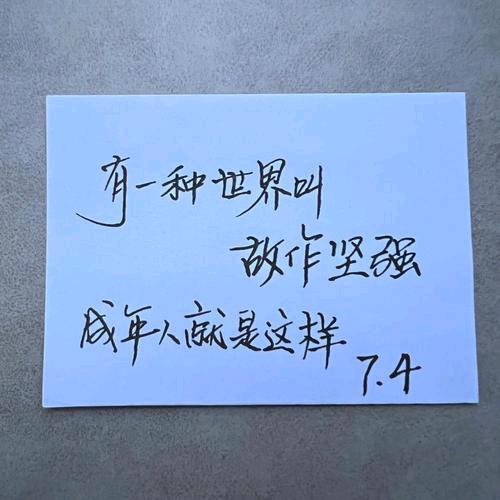 有一种世界叫
故作坚强
成年人就是这样
7.4